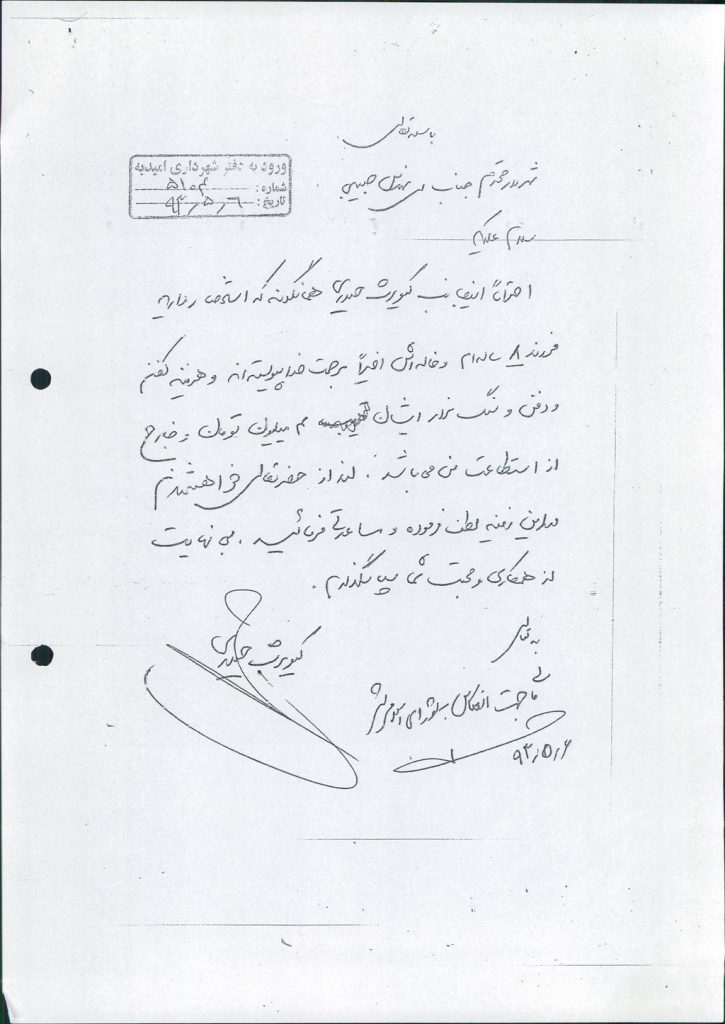 باسمه تعالی
ورود به دفتر شهرداری امیدیه
شماره: ۵۱۰۴
تاریخ: ۹۳٫۵٫۶
شهردار محترم جناب آقای مهندس حبیبی
سلام علیکم
احتراماً اینجانب کیومرث حیدری همانگونه که استحضار دارید
فرزند ۸ ساله‌ام و خاله‌اش اخیراً برحمت خدا پیوسته‌اند و هزینه کفن
و دفن و سنگ مزار ایشان ۳ میلیون تومان و خارج
از استطاعت من می باشد. لذا از حضرتعالی خواهشمندم
در این زمینه لطف فرموده و مساعدتی فرمائید. بی نهایت
از همکاری و محبت شما سپاسگذارم.
کیومرث حیدری
به تعالی
جهت انعکاس به شورای اسلامی شهر
۹۳٫۵٫۶